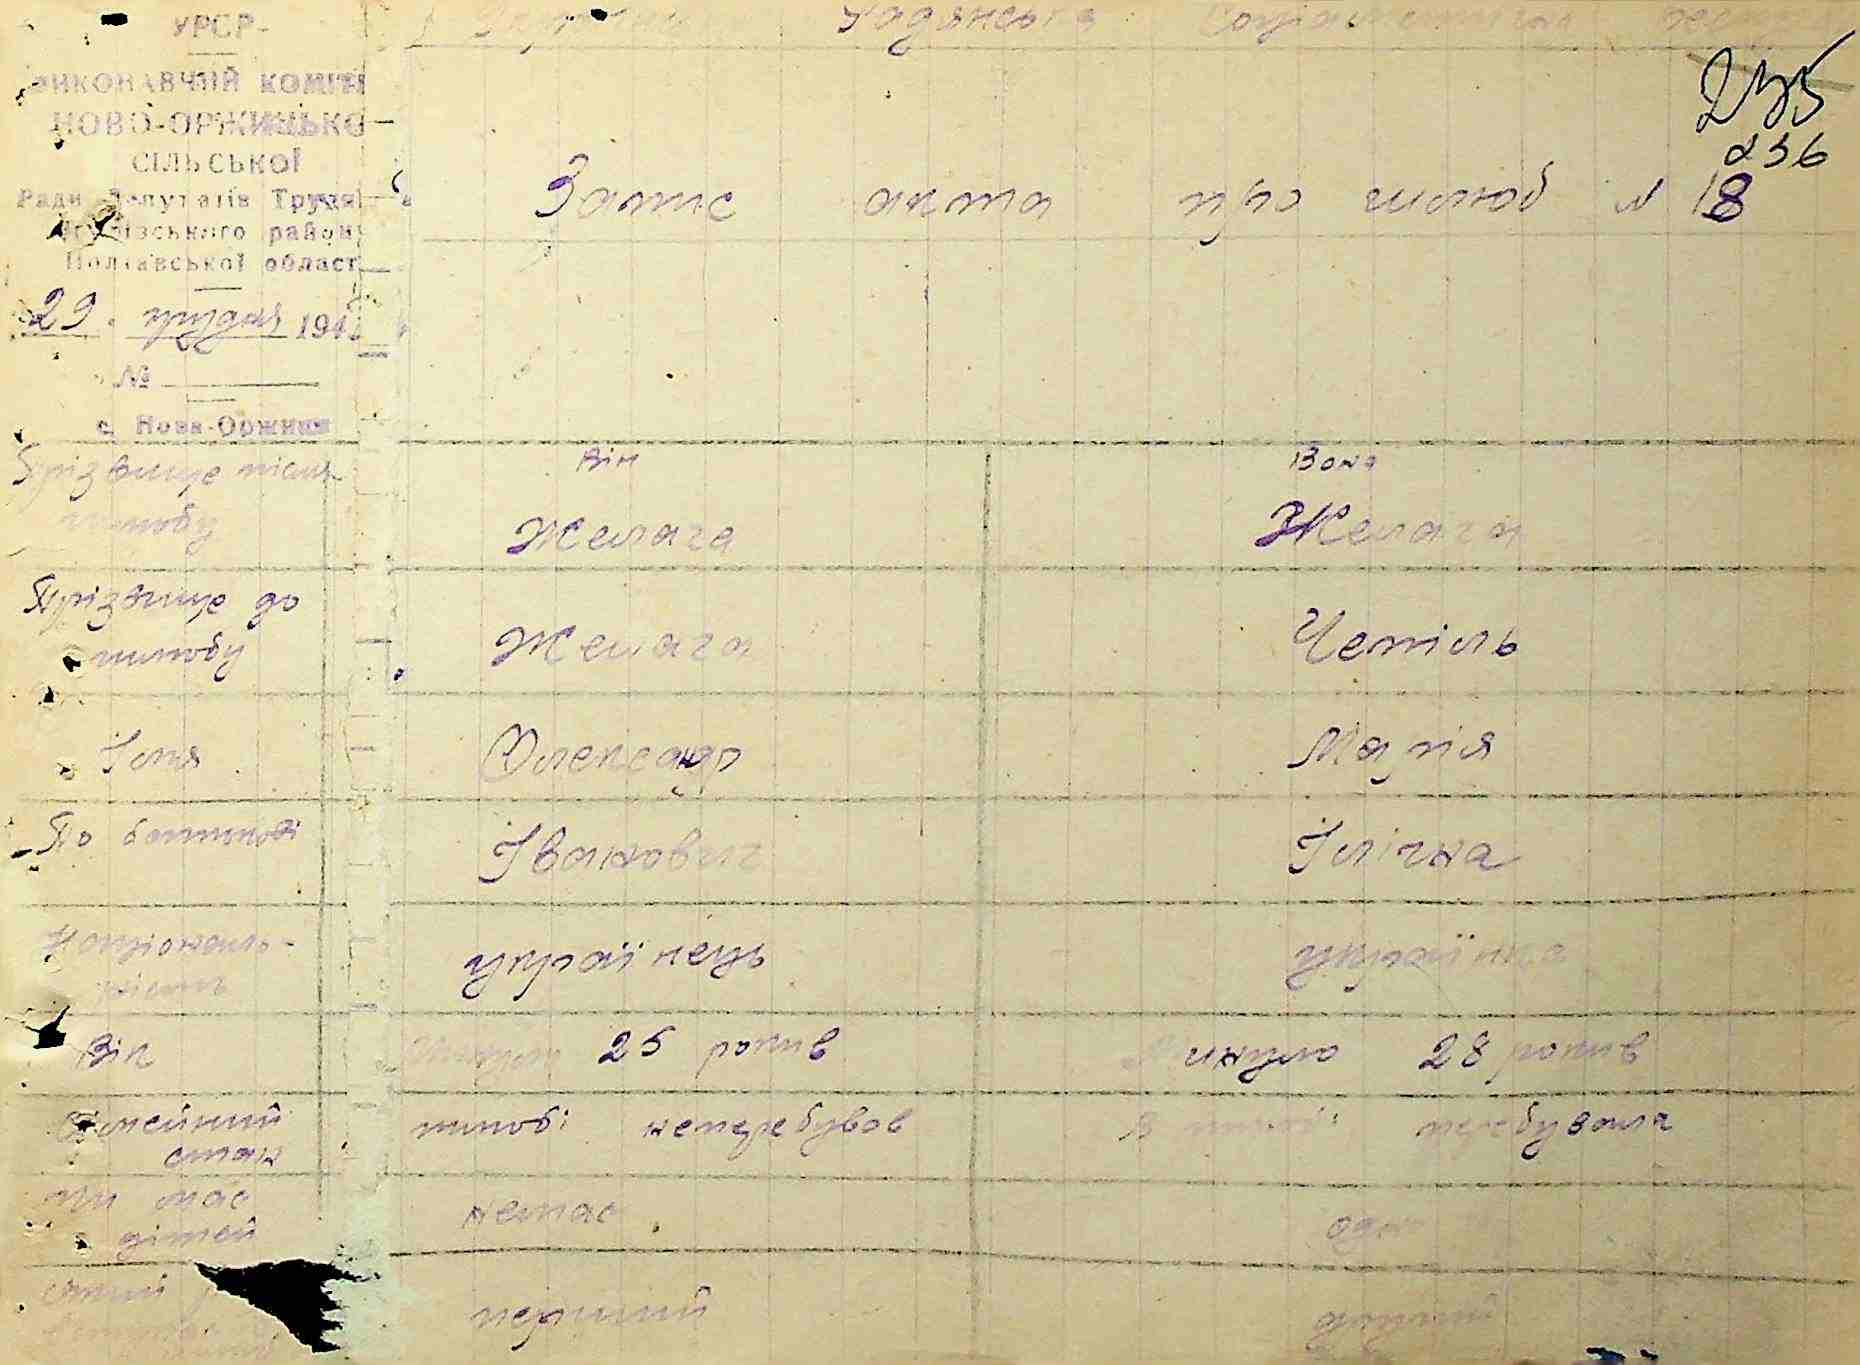 Українська Радянська Соціалістична
УРСР
ВИКОНАВЧИЙ КОМІТЕ
НОВО-ОРЖИЦЬКО
СІЛЬСЬКОЇ
Ради Депутатів Трудя
району
Полтавської област
29 грудня 194
№
с. Нова-Оржиця
235
236
Запис акта про шлюб № 18
Він Вона
Прізвище після шлюбу Желага Желага
Прізвище до шлюбу Желага Чепіль
Імя Олександр Марія
По батькові Іванович Ілічна
Національність українець українка
Вік Минуло 25 рокив Минуло 28 рокив
Сімейний стан шлюбі неперебував В шлюбі перебувала
чи має дітей немає один
перший другий